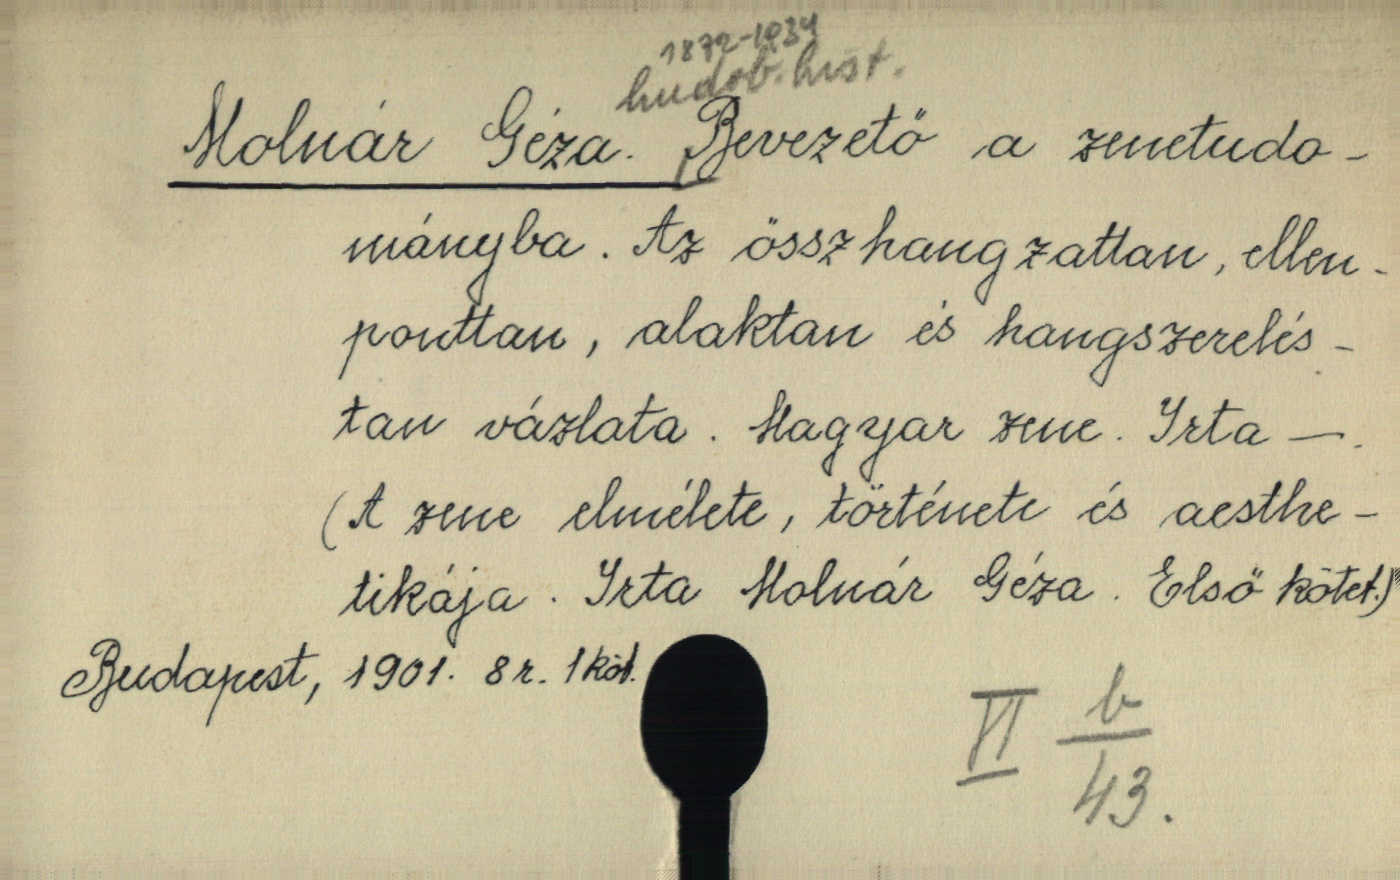 1872-1934
hudob. hist.
Molnár Géza. Bevezető a zenetudo-
mányba. Az összhangzattan, ellen-
ponttan, alaktan és hangszerelés-
tan vázlata. Magyar zene. Irta —.
(A zene elmélete, története és aesthe-
tikája. Irta Molnár Géza. Első kötet.)
Budapest, 1901. 8 r. 1 köt.
VI b/43.